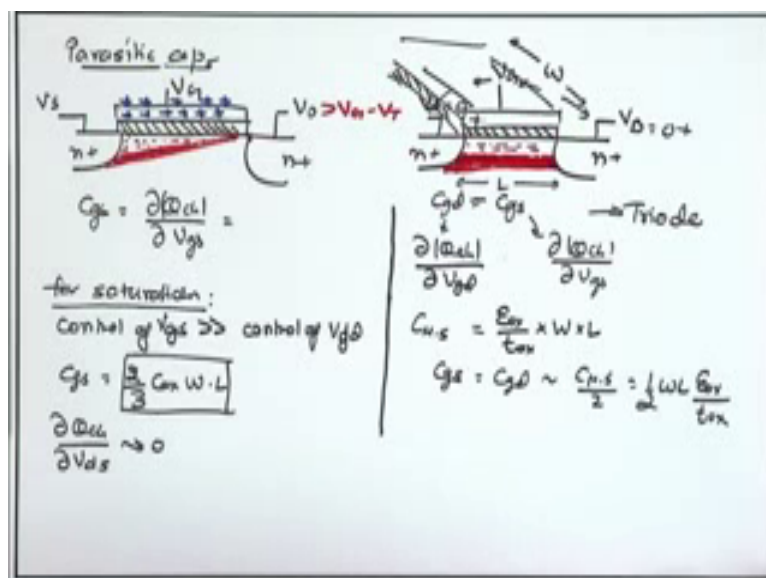 Parasitic caps
VG
VS
VD > VGS - VT
n+
n+
Cgs = ∂|Qch| / ∂Vgs =
for saturation:
Control of Vgs >> control of Vgd
Cgs = 2/3 Cox W·L
∂Qch / ∂Vds → 0
W
VD = 0+
n+
n+
L
Cgd = Cgs → Triode
∂|Qch| / ∂Vgd
∂|Qch| / ∂Vgs
CM-S = εox / tox × W × L
Cgs = Cgd ~ CM-S / 2 = 1/2 WL εox / tox